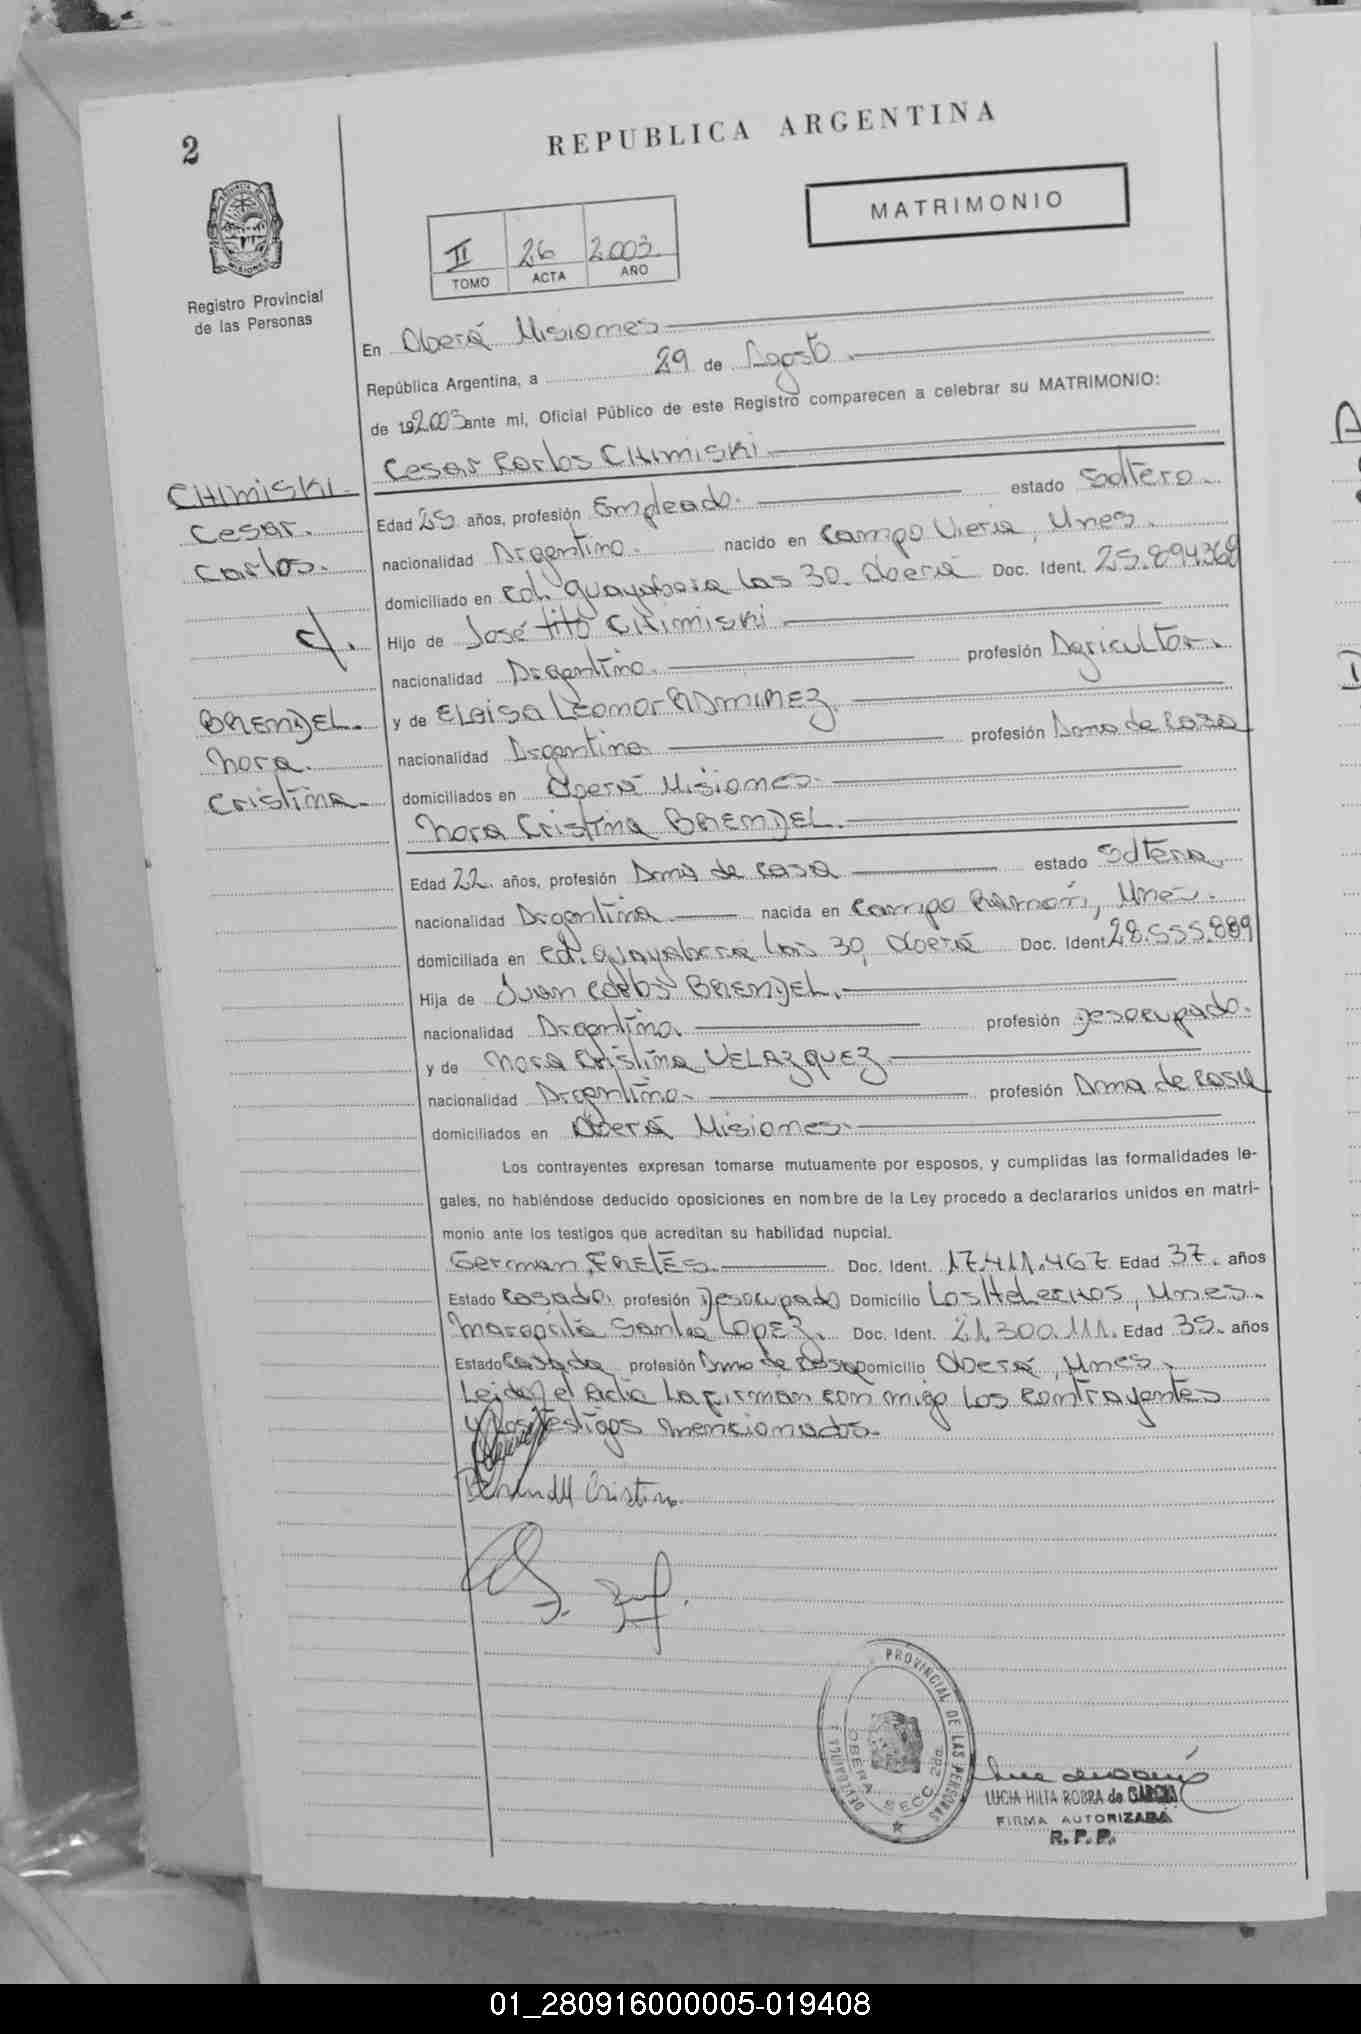 2
REPUBLICA ARGENTINA
MATRIMONIO
II 26 2.003.
TOMO ACTA AÑO
Registro Provincial
de las Personas
En Oberá Misiones
República Argentina, a 29 de Agosto
de 2.003 ante mí, Oficial Público de este Registro comparecen a celebrar su MATRIMONIO:
Cesar Carlos CHIMISKI
CHIMISKI
Cesar.
Carlos.
c/.
BRENDEL.
Nora.
Cristina.
Edad 25 años, profesión Empleado. estado Soltero.
nacionalidad Argentino. nacido en Campo Viera, Mnes.
domiciliado en Col. Guayabera Las 30. Oberá Doc. Ident. 25.894.368
Hijo de José Tito CHIMISKI
nacionalidad Argentino. profesión Agricultor.
y de ELOISA LEONOR RAMIREZ.
nacionalidad Argentina profesión Ama de Casa
domiciliados en Oberá Misiones.
Nora Cristina BRENDEL.
Edad 22. años, profesión Ama de casa estado Soltera
nacionalidad Argentina nacida en Campo Ramón, Mnes.
domiciliada en Col. Guayabera Las 30, Oberá Doc. Ident. 28.555.889
Hija de Juan BRENDEL.
nacionalidad Argentino. profesión Desocupado.
y de Nora Cristina VELAZQUEZ
nacionalidad Argentina. profesión Ama de casa
domiciliados en Oberá Misiones.
Los contrayentes expresan tomarse mutuamente por esposos, y cumplidas las formalidades le-
gales, no habiéndose deducido oposiciones en nombre de la Ley procedo a declararlos unidos en matri-
monio ante los testigos que acreditan su habilidad nupcial.
German Doc. Ident. 17.411.467 Edad 37. años
Estado Casado. profesión Desocupado Domicilio Los Helechos, Mnes.
Margarita LOPEZ. Doc. Ident. 21.300.111. Edad 35. años
Estado Casada profesión Ama de Casa Domicilio Oberá, Mnes.
Leida el Acta La firman con migo Los contrayentes
y Los Testigos mencionados.
Cristina
PROVINCIAL DE LAS PERSONAS
OBERA SECC. 2da.
LUCIA HILTA ROBRA de GARCIA
FIRMA AUTORIZADA
R. P. P.
01_280916000005-019408